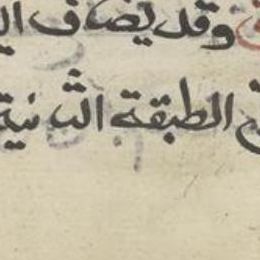 وقد يضاف الى
الطبقة الثانية